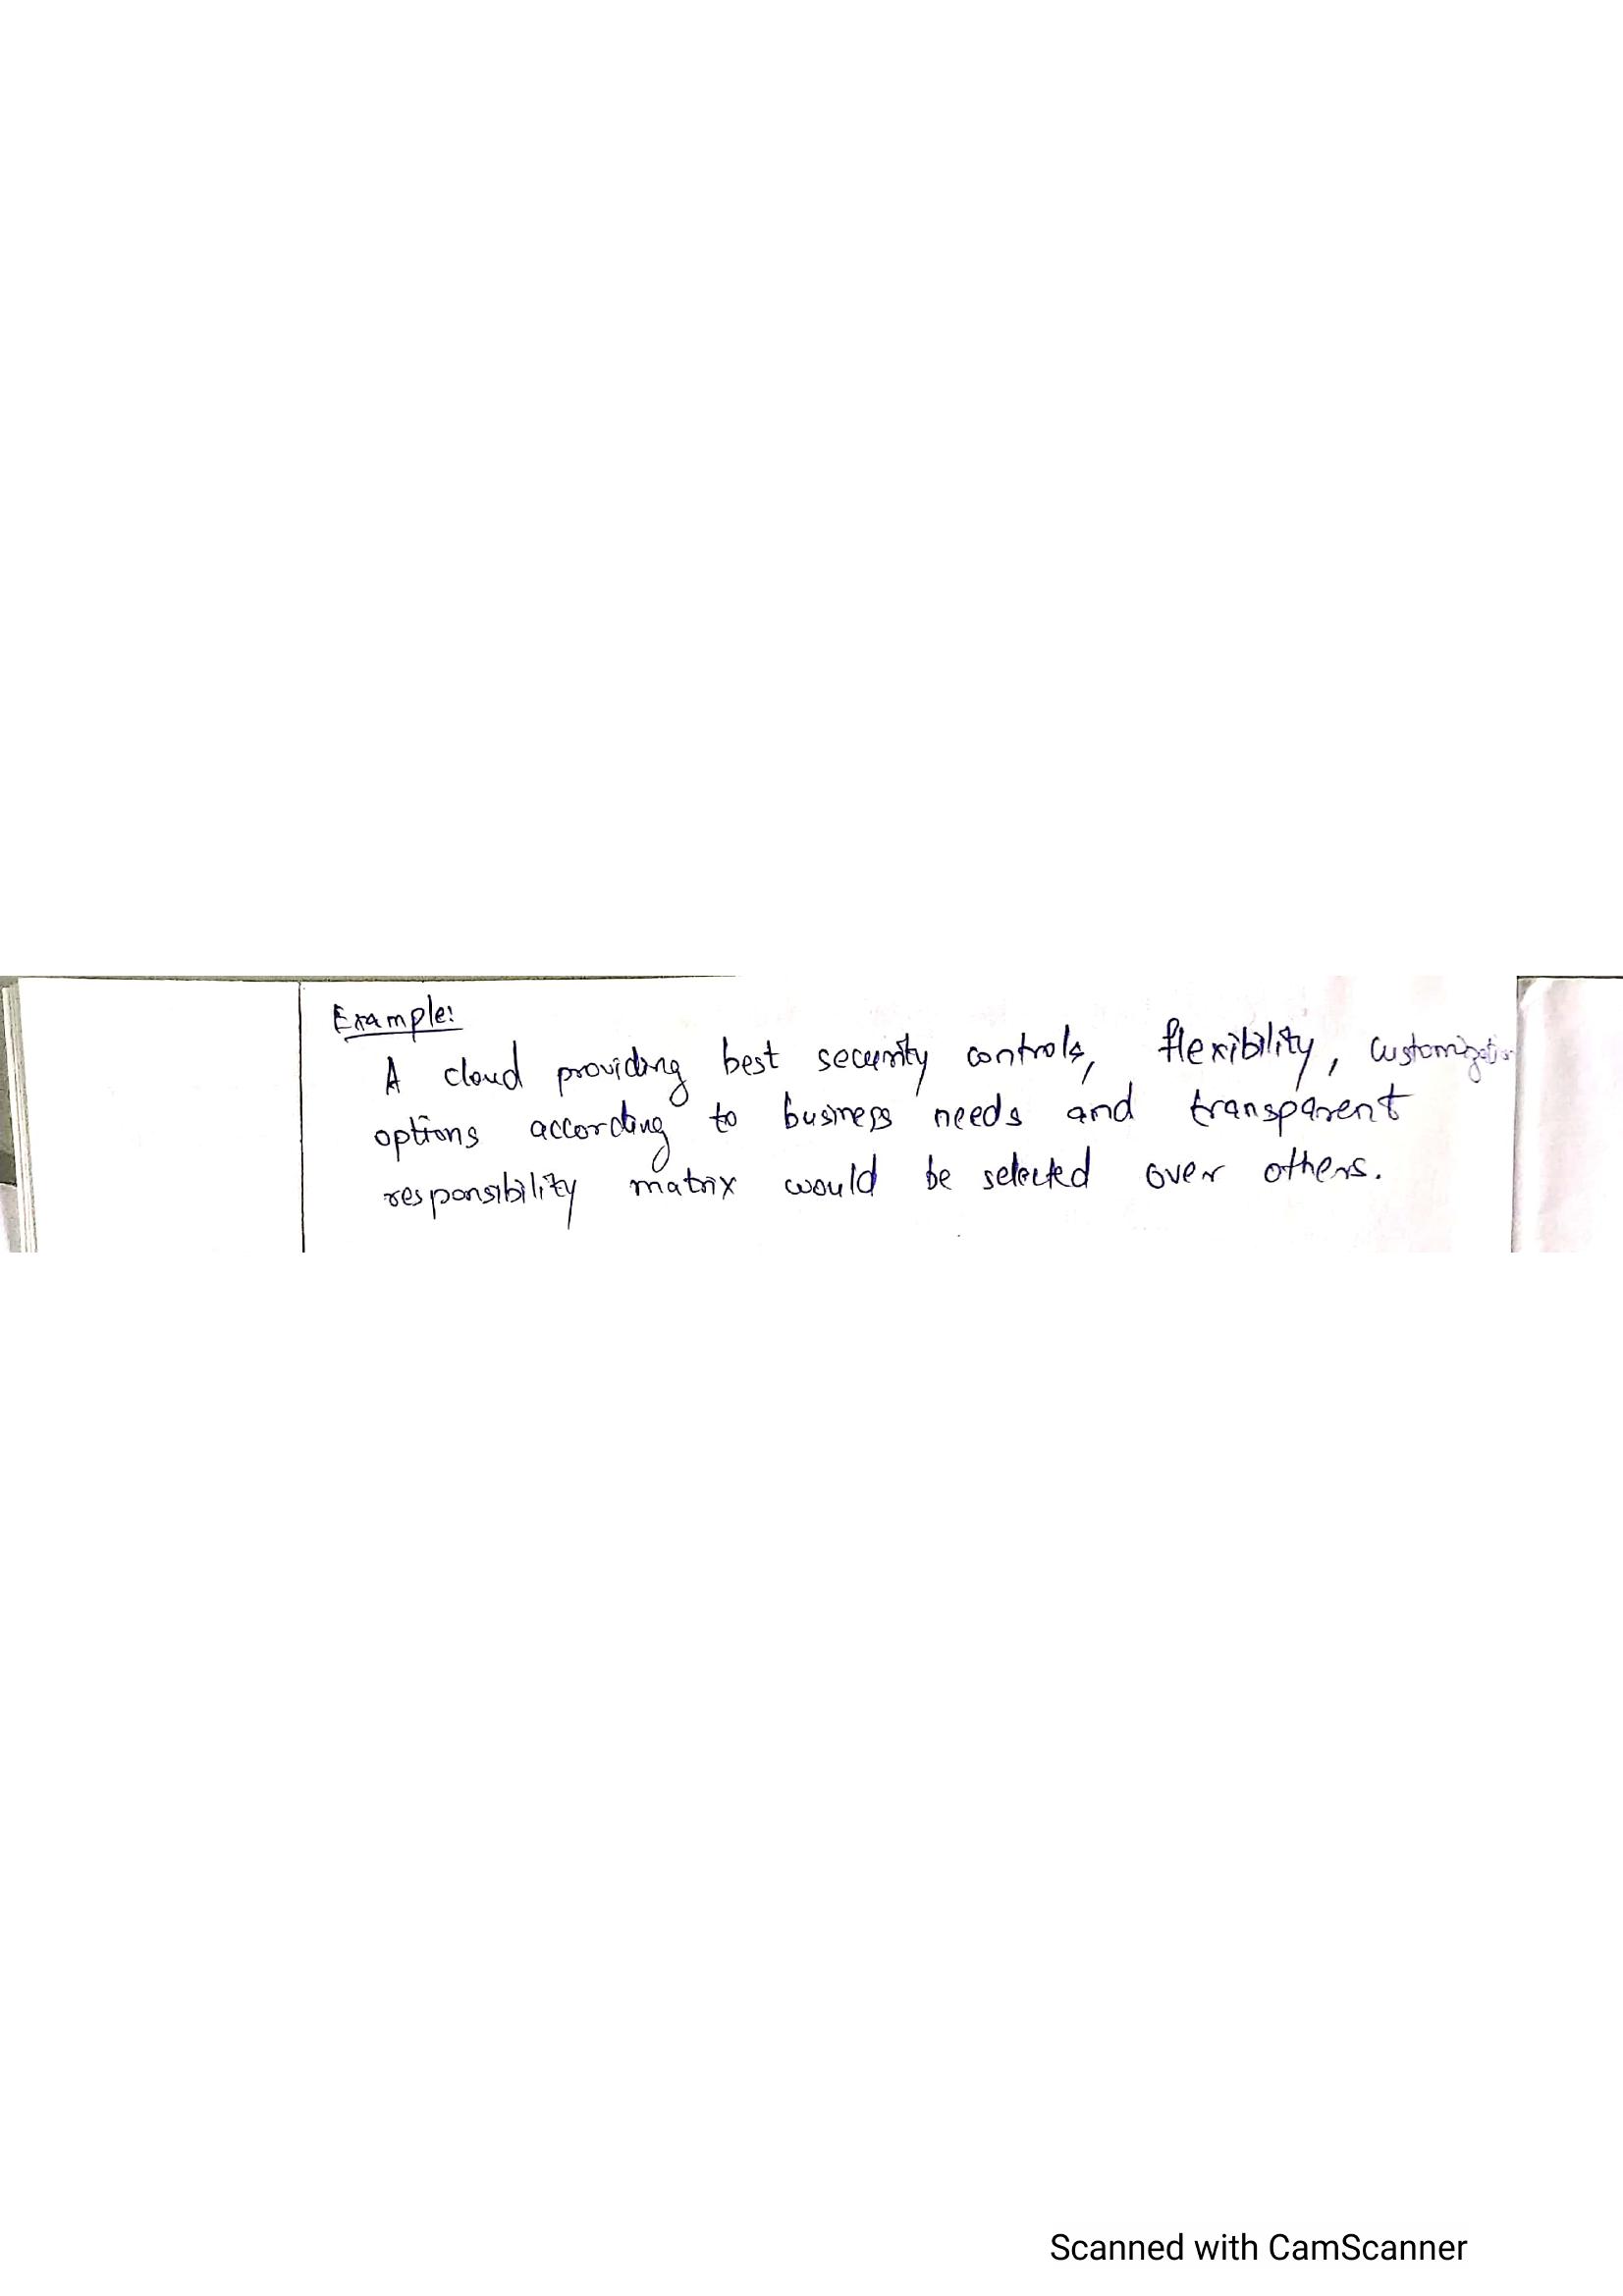 Example:
A cloud providing best security controls, flexibility, customization
options according to business needs and transparent
responsibility matrix would be selected over others.
Scanned with CamScanner